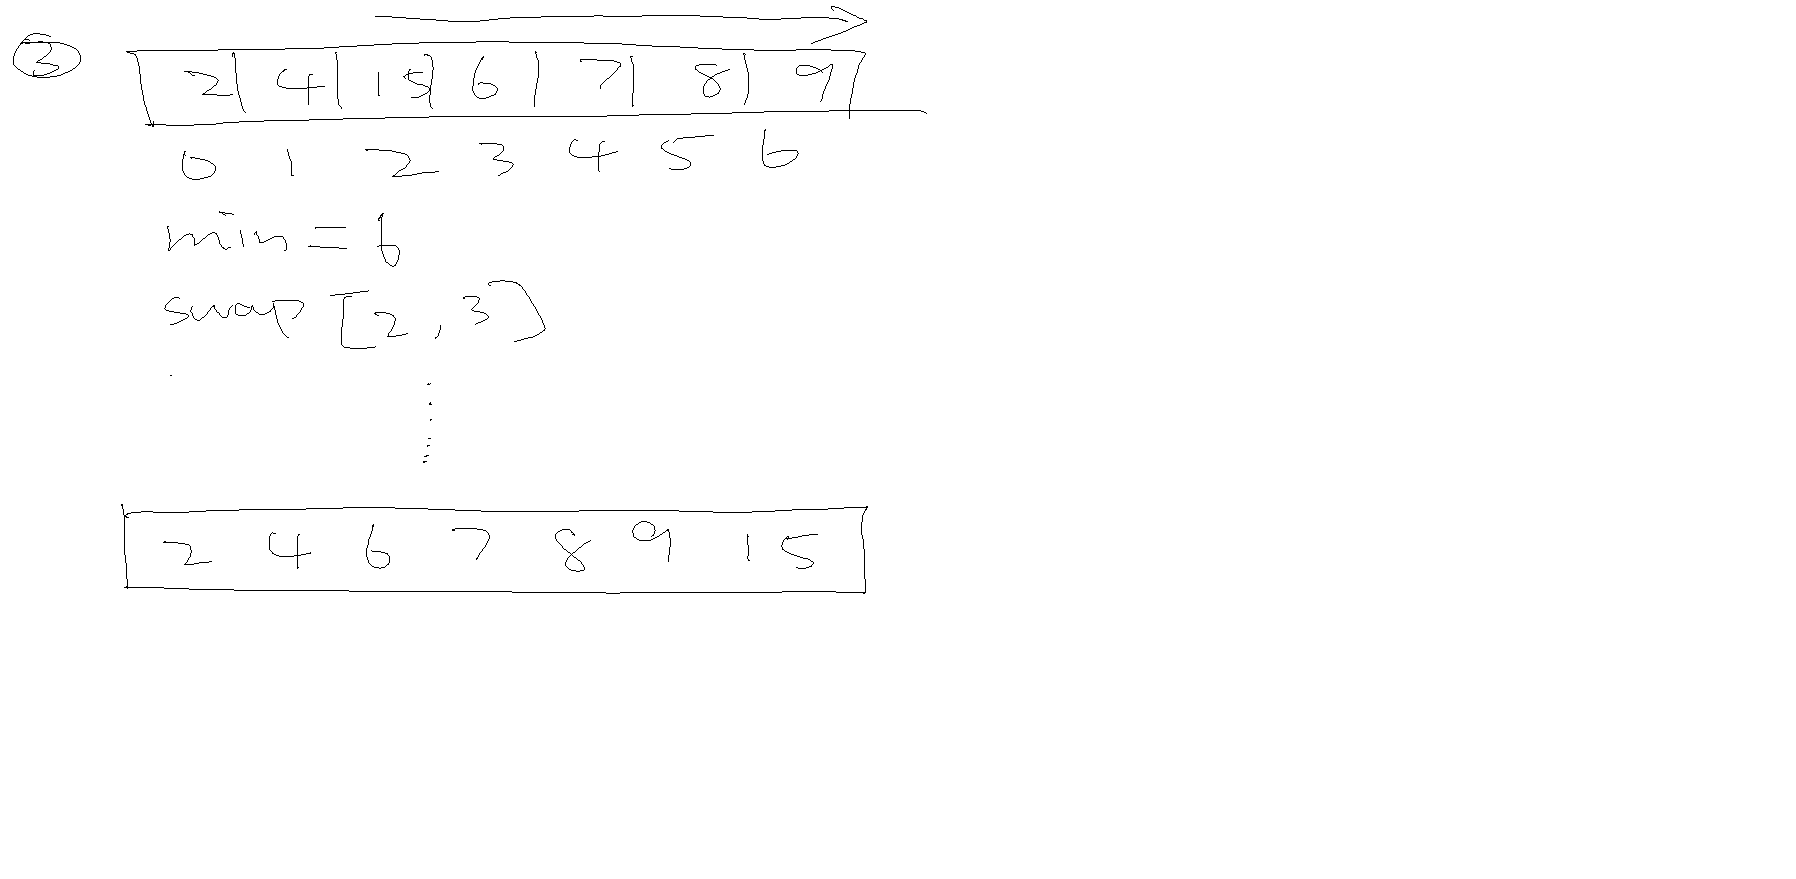 ③
2 4 15 6 7 8 9
0 1 2 3 4 5 6
min = 6
swap [2, 3]
2 4 6 7 8 9 15